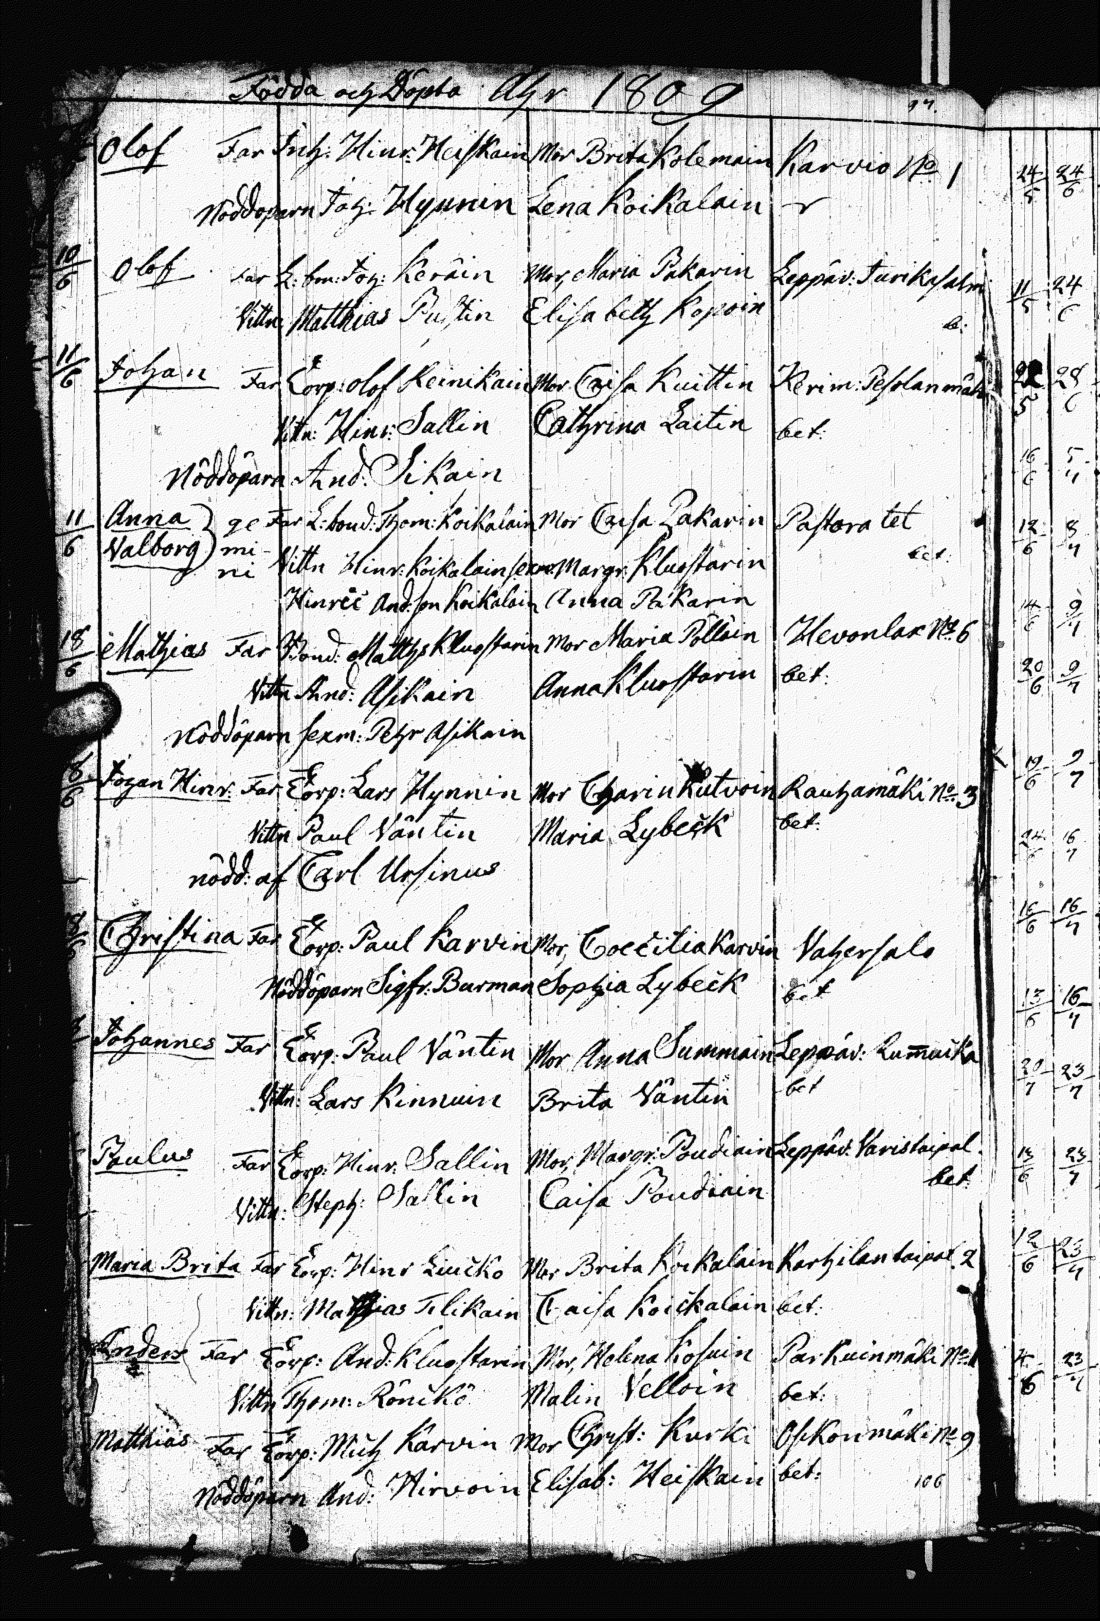 Födda och Döpta Åhr 1809
97.
Olof Far Inh: Hinr: Heiskain Mor Brita Kolemain Karvio No 1 24/5 24/6
Nöddöparn Joh: Hynnin Lena Koikalain
10/6 Olof Far L: bm: Joh: Keräin Mor, Maria Pakarin Leppäv: Turikasalm 11/5 24/6
Vittn: Matthias Pustin Elisabeth Kopoin b:
11/6 Johan Far Torp: Olof Keinikain Mor Caisa Kuittin Kerim: Pesolanmäki 22/5 28/6
Vittn: Hinr: Sallin Cathrina Laitin bet:
Nöddöparn And: Sikain 16/6 5/7
11/6 Anna ge Far L: bond: Thom: Koikalain Mor Caisa Pakarin Pastoratet 12/6 8/7
Valborg mi- Vittn Hinr: Koikalain sexm: Margr: Kluostarin bet:
ni
Hinric And:son Koikalain Anna Pakarin 14/6 9/7
18/6 Mathias Far Bond: Matths Kluostarin Mor Maria Pölläin Hevonlax No 6
Vittn And: Asikain Anna Kluostarin bet: 20/6 9/7
Nöddöparn sexm: Pehr Asikain
8/6 Johan Hinr: Far Torp: Lars Hynnin Mor Charin Kutvoin Rauhamäki No 3 19/6 9/7
Vittn Paul Väntin Maria Lybeck bet:
nödd: af Carl Ursinus 24/6 16/7
Christina Far Torp: Paul Karvin Mor, Coecilia Karvin Vahersalo 16/6 16/7
Nöddöparn Sigfr: Burman Sophia Lybeck bet 13/6 16/7
Johannes Far Torp: Paul Väntin Mor Anna Summain Leppäv: Rummucka
Vittn: Lars Kinnuin Brita Väntin bet 20/7 23/7
Paulus Far Torp: Hinr: Sallin Mor, Margr: Poudiain Leppäv: Varistaipal. 13/6 23/7
Vittn: Steph: Sallin Caisa Poudiain bet
Maria Brita Far Torp: Hinr Liucko Mor Brita Koikalain Karhilantaipal. 2 12/6 23/7
Vittn: Mathias Tilikain Caisa Koickalain bet:
Anders Far Torp: And: Kluostarin Mor, Helena Kosuin Parkuinmäki No 1 4/6 23/7
Vittn Thom: Rönickö Malin Velloin bet:
Matthias Far Torp: Mich Karvin Mor Christ: Kurki Oskonmäki No 9
Nöddöparn And: Hirvoin Elisab: Heiskain bet: 106